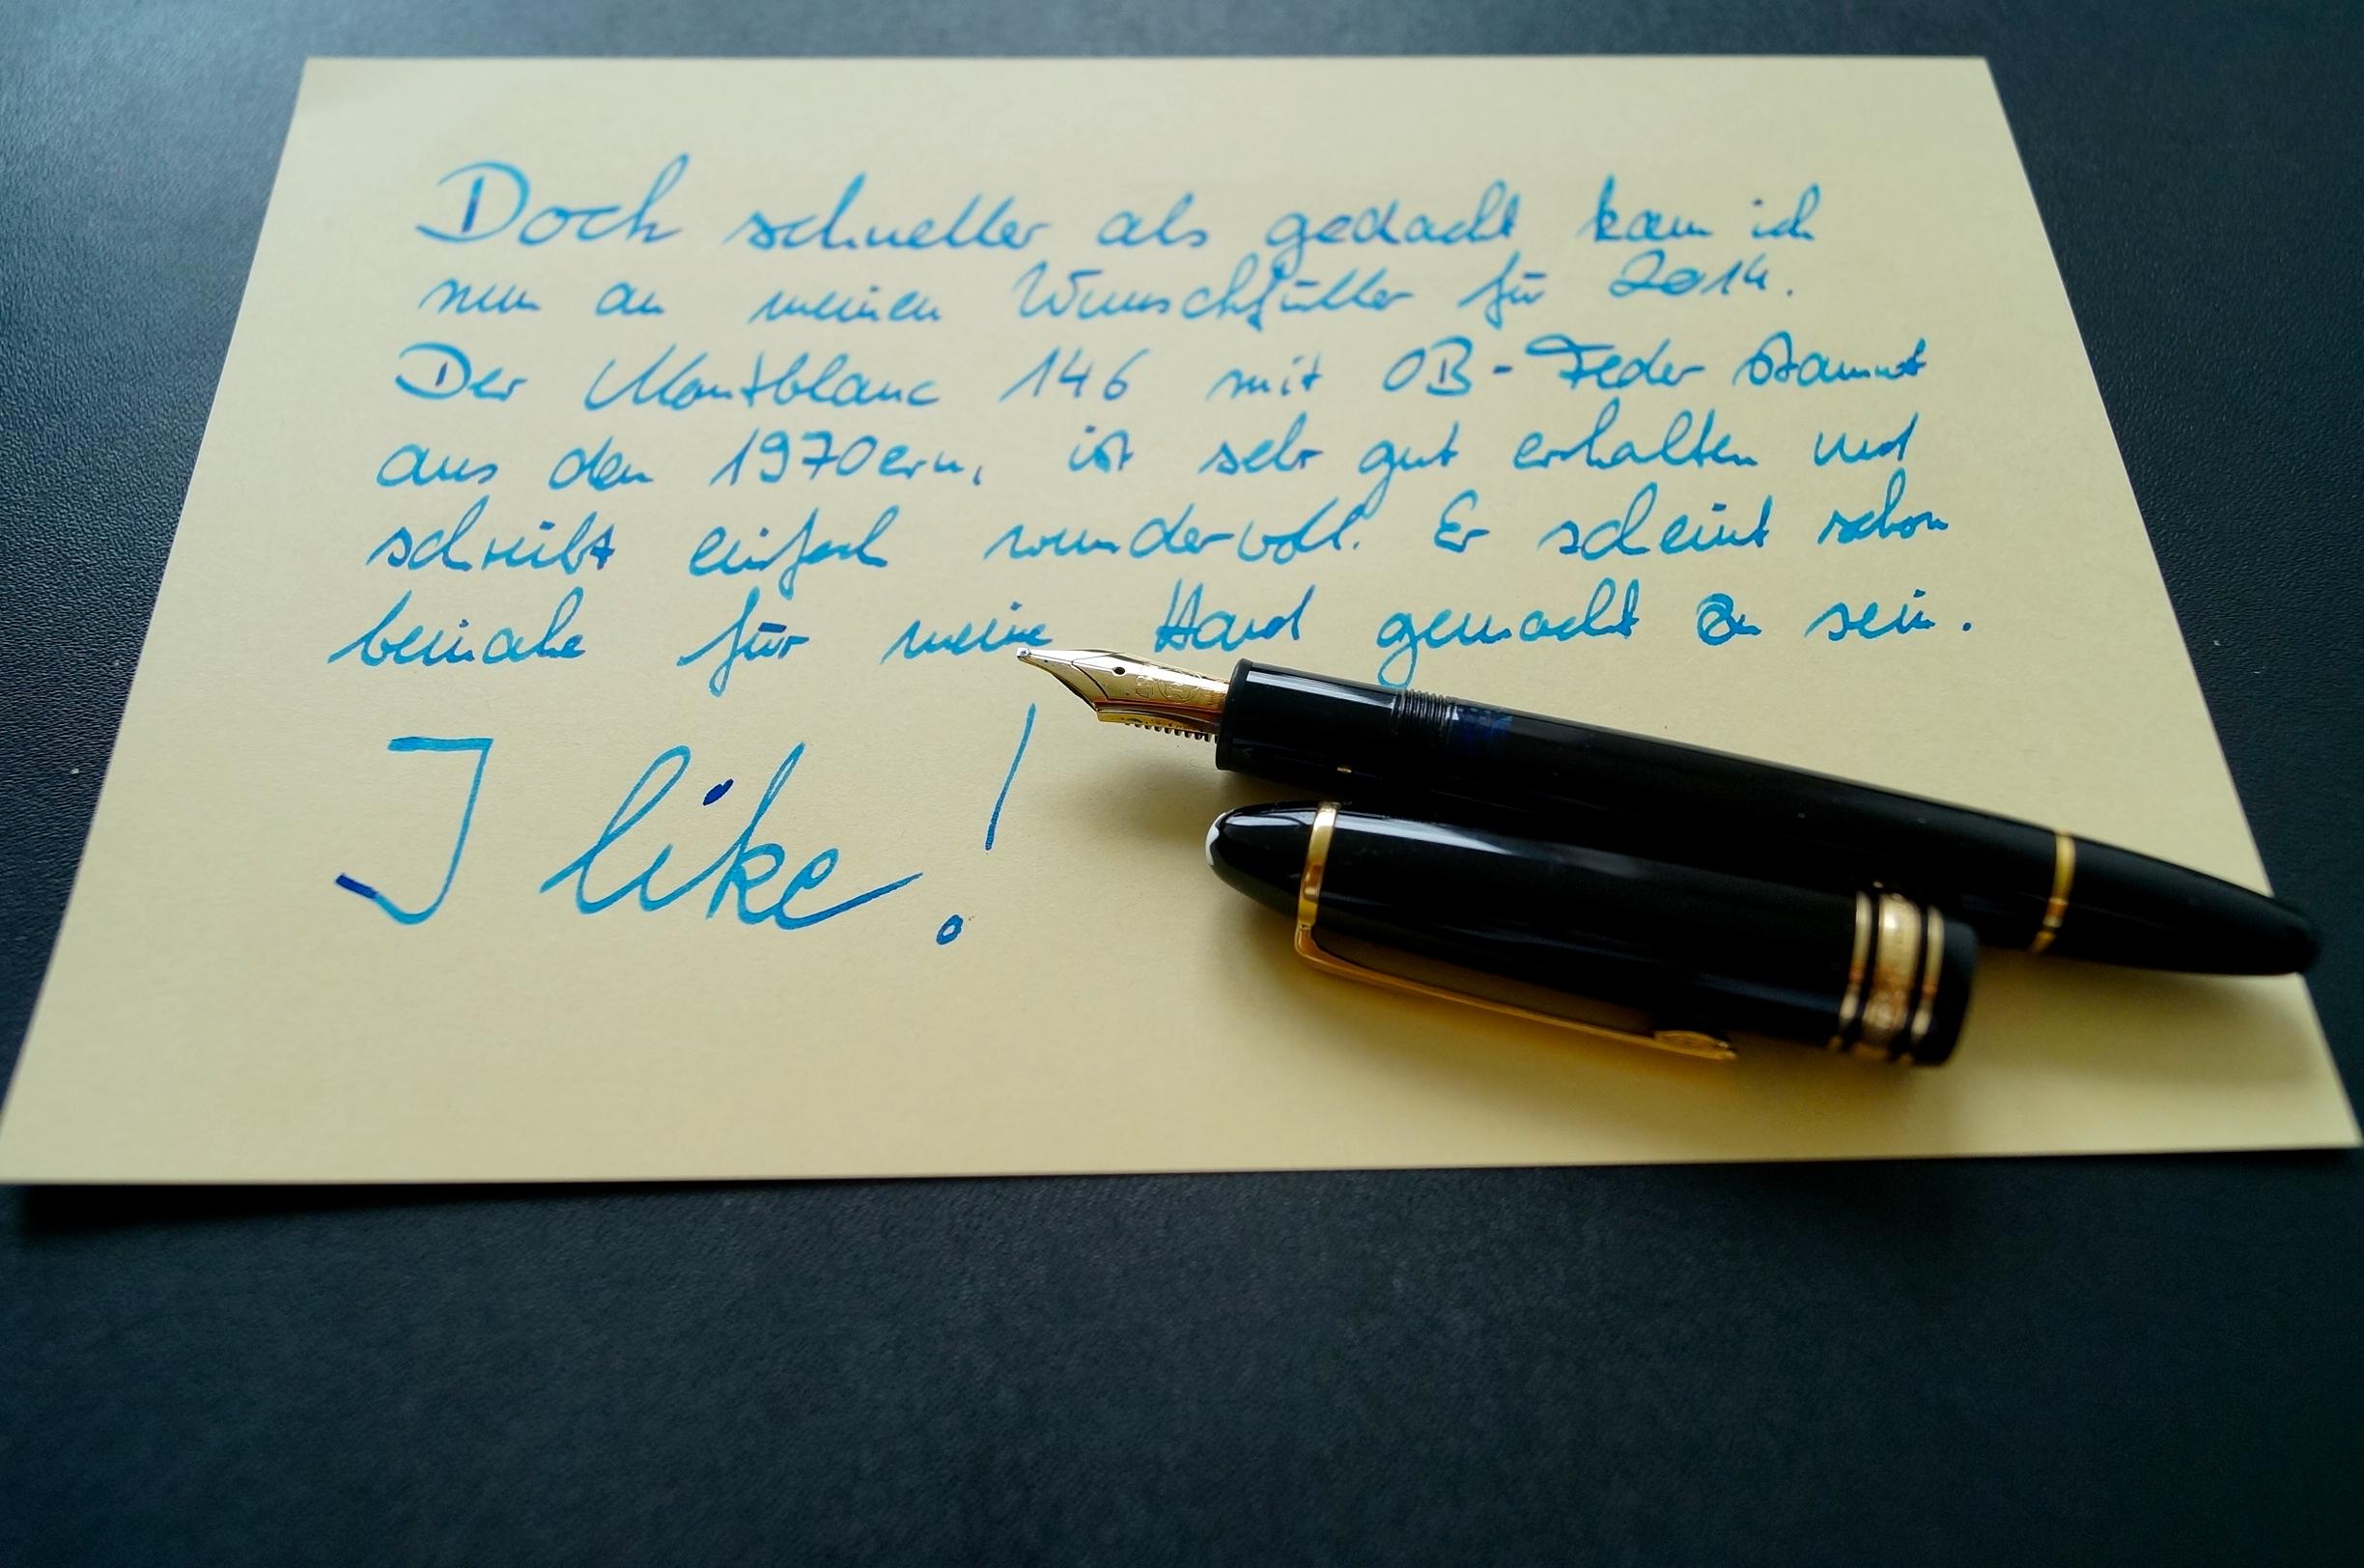 Doch schneller als gedacht kam ich
nun an meinen Wunschfüller für 2014.
Der Montblanc 146 mit OB-Feder stammt
aus den 1970ern, ist sehr gut erhalten und
schreibt einfach wundervoll. Er scheint schon
beinahe für meine Hand gemacht zu sein.
I like!